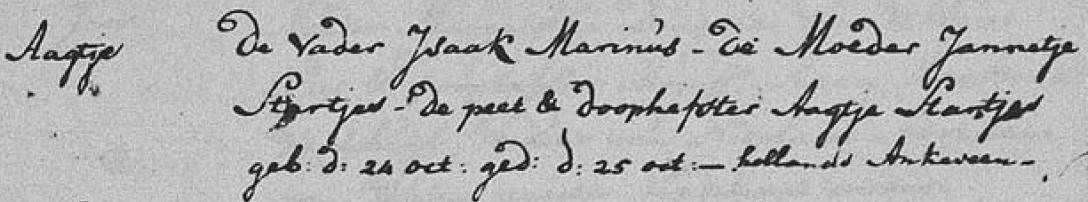 Aagtje De Vader Jsaak Marinus - De Moeder Jannetje
Startjes - De peet & doophefster Aagtje Startjes
geb: d: 24 oct: ged: d: 25 oct: - hollands Ankeveen -